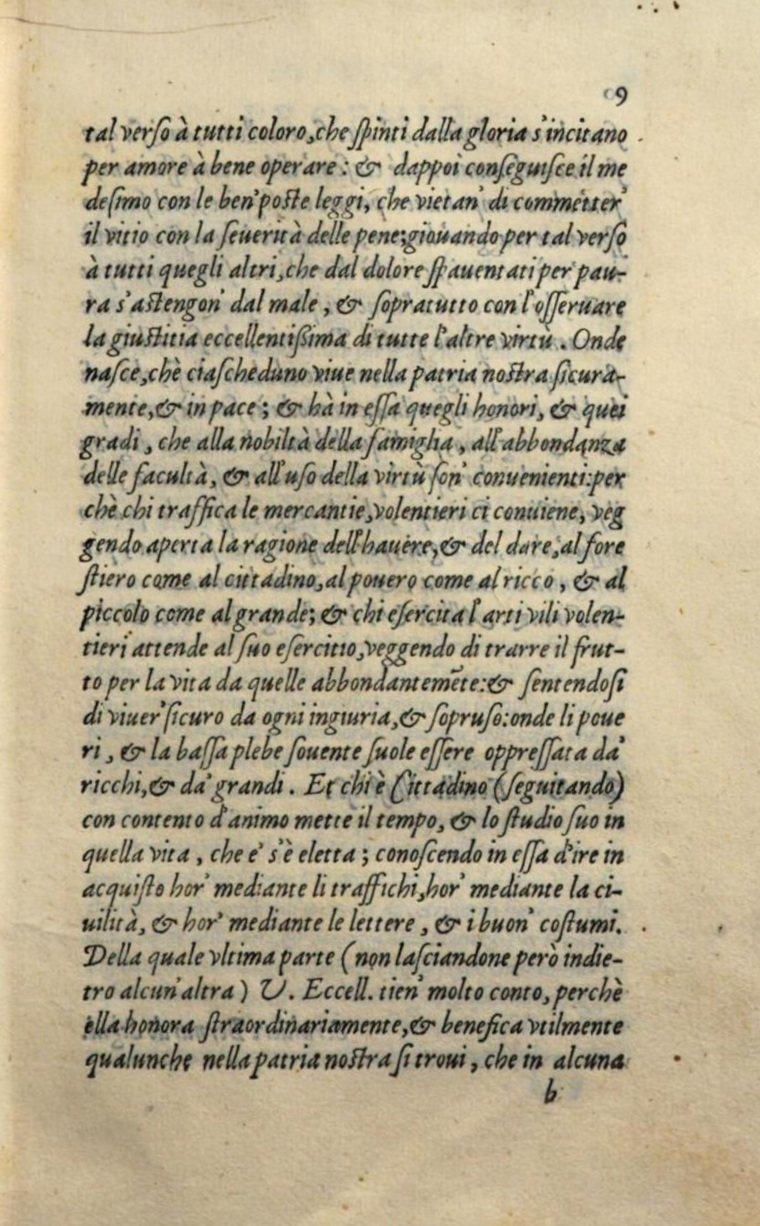 9
tal verſo à tutti coloro, che ſpinti dalla gloria s'incitano
per amore à bene operare: & dappoi conſeguiſce il me
deſimo con le ben'poſte leggi, che vietan' di commetter'
il vitio con la ſeuerità delle pene; giouando per tal verſo
à tutti quegli altri, che dal dolore ſpauentati per pau-
ra s'aſtengon' dal male, & ſopratutto con l'oſſeruare
la giuſtitia eccellentißima di tutte l'altre virtù. Onde
naſce, chè ciaſcheduno viue nella patria noſtra ſicura-
mente, & in pace; & hà in eſſa quegli honori, & quei
gradi, che alla nobiltà della famiglia, all'abbondanza
delle facultà, & all'uſo della virtù ſon' conuenienti: per
chè chi traffica le mercantie, volentieri ci conuiene, veg
gendo aperta la ragione dell'hauere, & del dare, al fore
ſtiero come al cittadino, al pouero come al ricco, & al
piccolo come al grande; & chi eſercita l'arti vili volen-
tieri attende al ſuo eſercitio, veggendo di trarre il frut-
to per la vita da quelle abbondantemẽte: & ſentendoſi
di viuer' ſicuro da ogni ingiuria, & ſopruſo: onde li poue
ri, & la baſſa plebe ſouente ſuole eſſere oppreſſata da'
ricchi, & da' grandi. Et chi è Cittadino (ſeguitando)
con contento d'animo mette il tempo, & lo ſtudio ſuo in
quella vita, che e' s'è eletta; conoſcendo in eſſa d'ire in
acquiſto hor' mediante li traffichi, hor' mediante la ci-
uilità, & hor' mediante le lettere, & i buon' coſtumi.
Della quale vltima parte (non laſciandone però indie-
tro alcun'altra) V. Eccell. tien' molto conto, perchè
ella honora ſtraordinariamente, & benefica vtilmente
qualunche nella patria noſtra ſi troui, che in alcuna
b